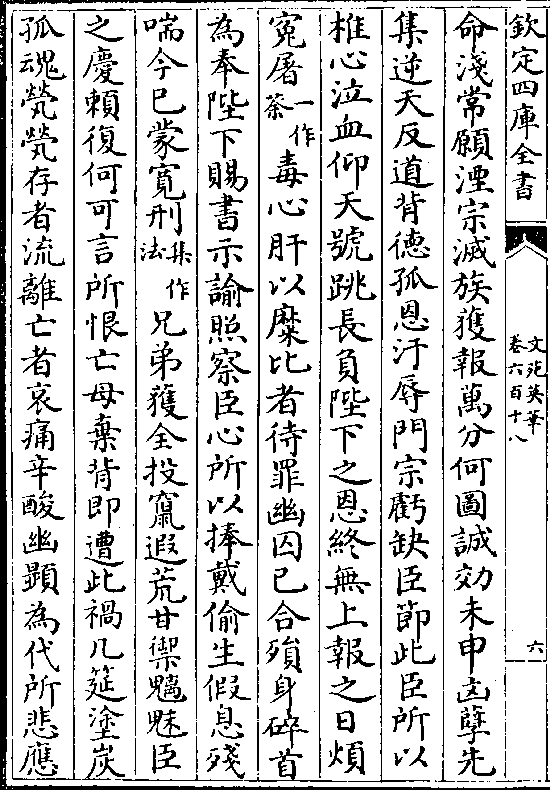 欽定四庫全書
文苑英華
卷六百十八
六
命淺常願湮宗滅族獲報萬分何圖誠効未申凶孽先
集逆天反道背德孤恩汙辱門宗虧缺臣節此臣所以
椎心泣血仰天號跳長負陛下之恩終無上報之日煩
寃屠一作荼毒心肝以糜比者待罪幽囚已合殞身碎首
為奉陛下賜書示諭照察臣心所以捧戴偷生假息殘
喘今已蒙寛刑集作法兄弟獲全投竄遐荒甘禦魑魅臣
之慶賴復何可言所恨亡母棄背即遭此禍几筵塗炭
孤魂煢煢存者流離亡者哀痛辛酸幽顯為代所悲應